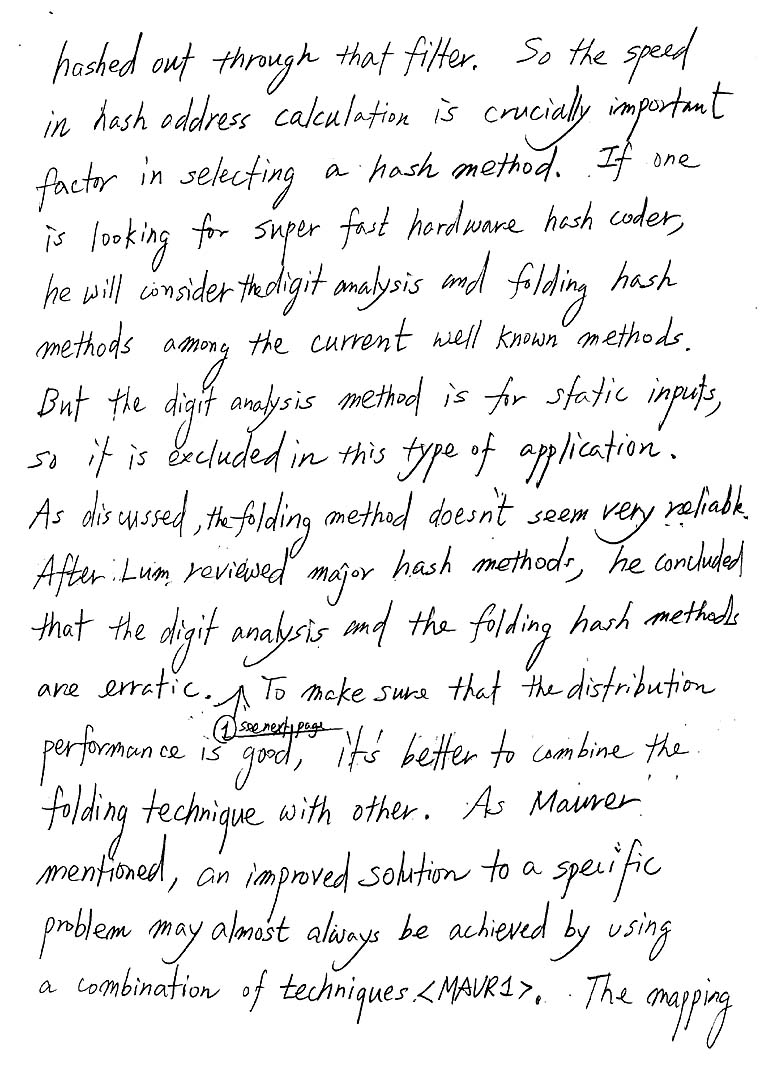 hashed out through that filter. So the speed
in hash address calculation is crucially important
factor in selecting a hash method. If one
is looking for super fast hardware hash coder,
he will consider the digit analysis and folding hash
methods among the current well known methods.
But the digit analysis method is for static inputs,
so it is excluded in this type of application.
As discussed, the folding method doesn't seem very reliable.
After Lum reviewed major hash methods, he concluded
that the digit analysis and the folding hash methods
are erratic. To make sure that the distribution
① see next page
performance is good, it's better to combine the
folding technique with other. As Maurer
mentioned, an improved solution to a specific
problem may almost always be achieved by using
a combination of techniques <MAUR1>. The mapping